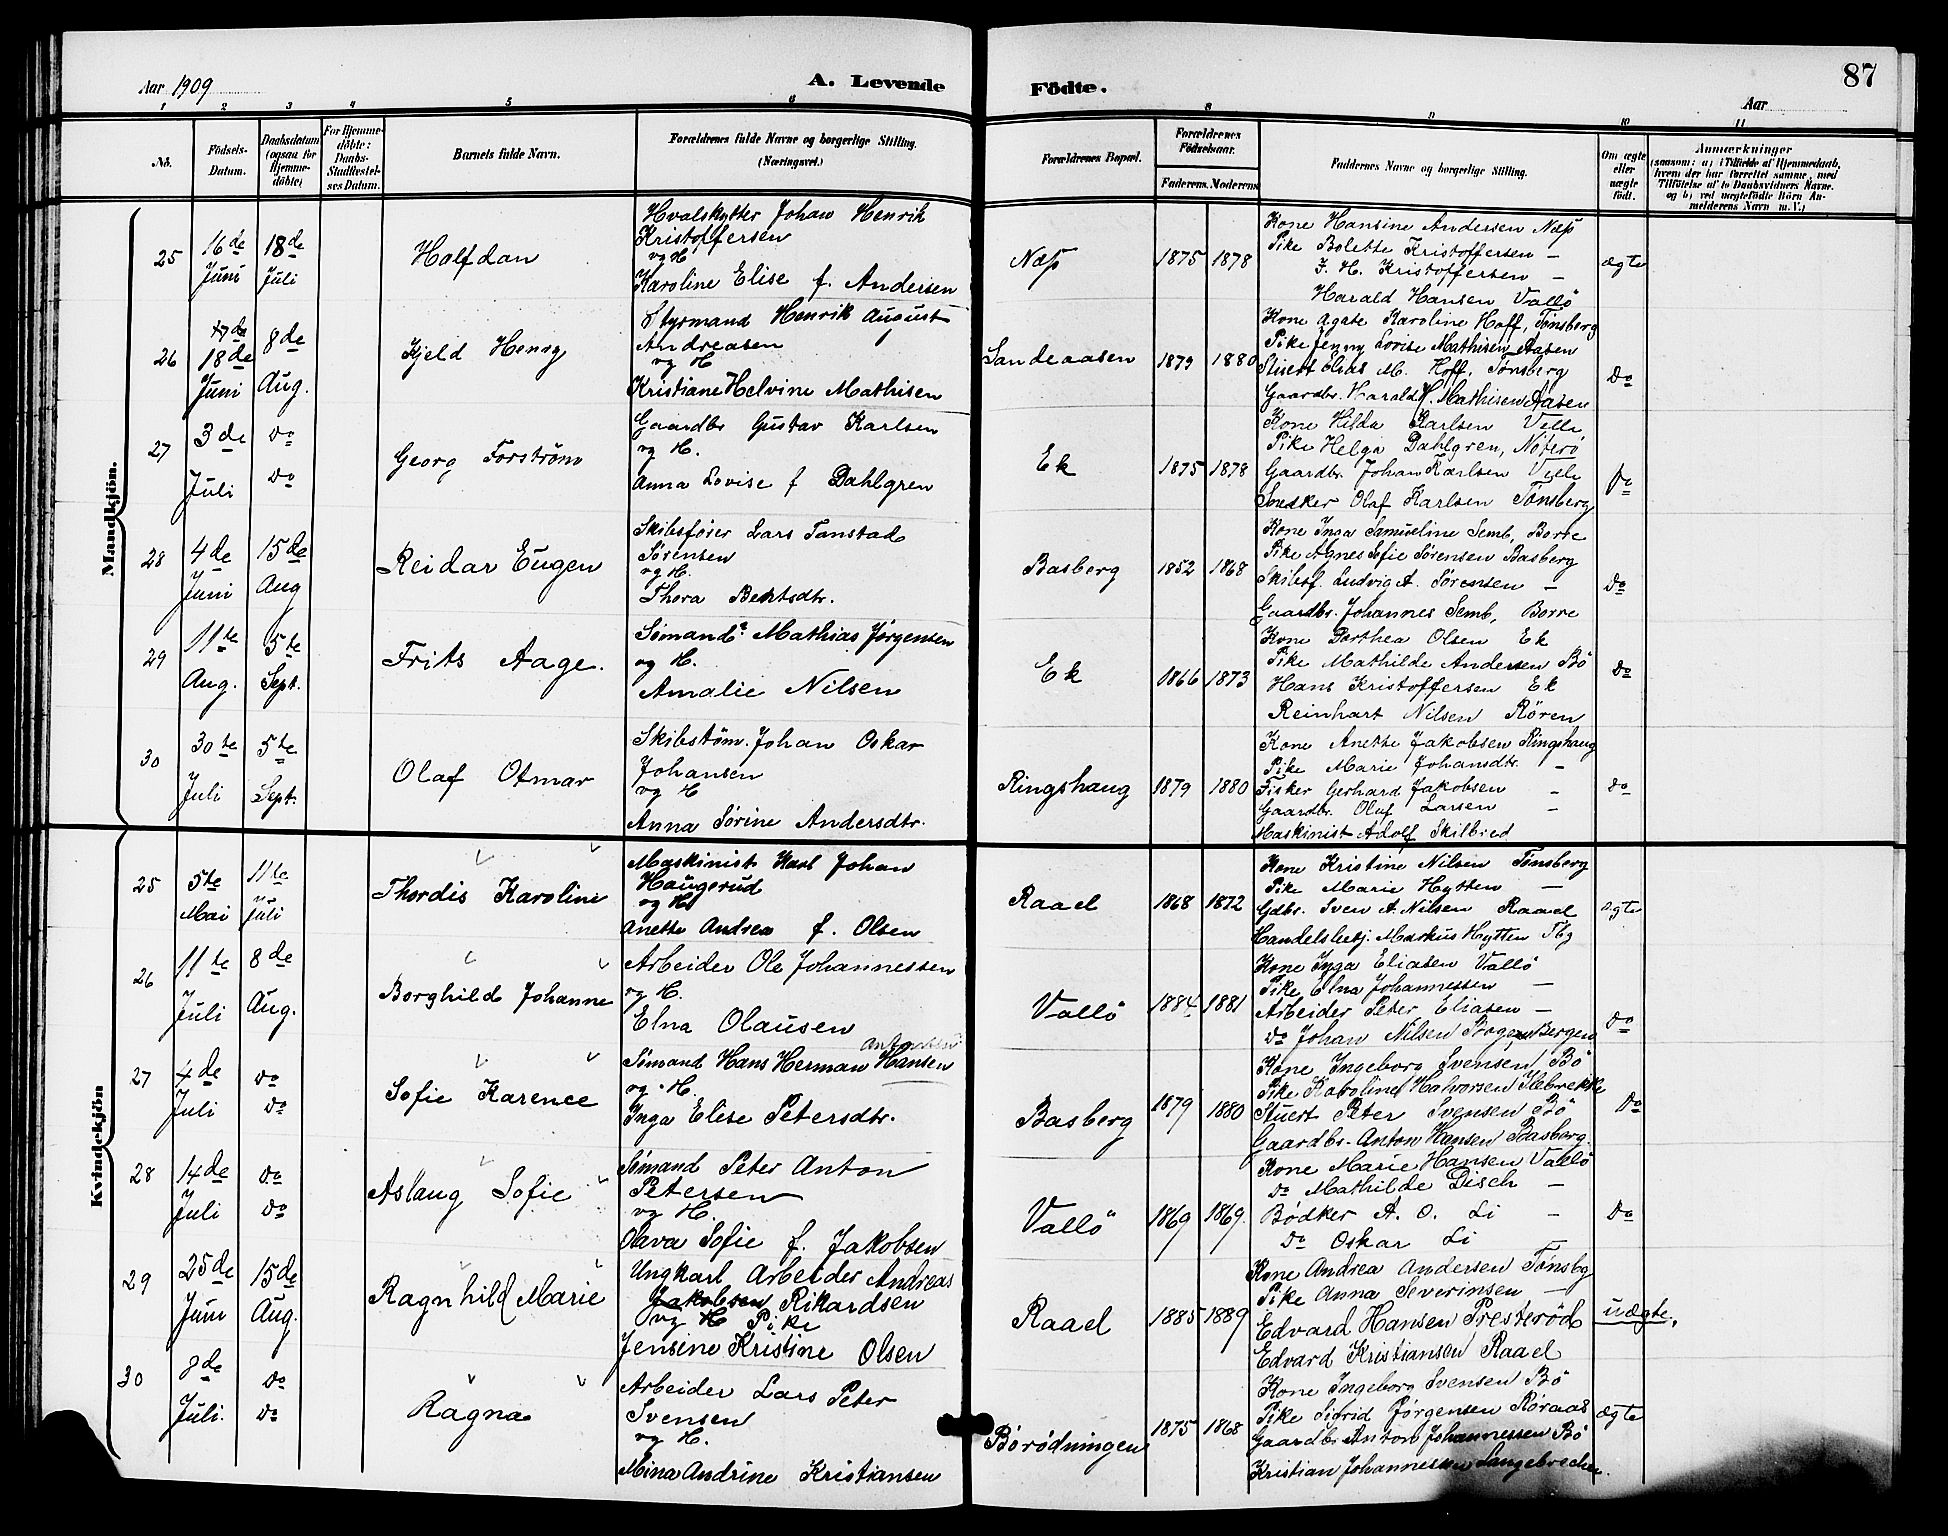 Aar 1909
A. Levende
Födte.
Aar
87
1 2 3 4 5 6 8 9 10 11
No.
Födsels-Datum.
Daabsdatum (ogsaa for Hjemme-döbte)
For Hjemme-döbte: Daabs-Stadfæstel-ses Datum.
Barnets fulde Navn.
Forældrenes fulde Navne og borgerlige Stilling.
(Næringsvei.)
Forældrenes Bopæl.
Forældrenes Födselsaar.
Faderens. Moderens.
Faddernes Navne og borgerlige Stilling.
Om ægte eller uægte födt.
Anmærkninger
(saasom: a) i Tilfælde af Hjemmedaab,
hvem der har forrettet samme, med
Tilföielse af to Daabsvidners Navne.
og b) ved uægtefödte Börn An-
melderens Navn m. V.)
Mandkjön.
25
16de Juni
18de Juli
Halfdan
Hvalskytter Johan Henrik
Kristoffersen
og H
Karoline Elise f. Andersen
Næss
1875 1878
Kone Hansine Andersen Næss
Pike Bolette Kristoffersen –
J. H. Kristoffersen –
Harald Hansen Vallö
ægte
26
18de Juni
8de Aug.
Kjeld Henry
Styrmand Henrik August
Andreasen
og H
Kristiane Helvine Mathisen
Sandeaasen
1879 1880
Kone Agate Karoline Hoff, Tønsberg
Pike Jenny Lovise Mathisen Aasen
Stuert Elias M. Hoff, Tønsberg
Gaardbr. Harald H. Mathisen Aasen
Do
27
3de Juli
Do Do
Georg Forstrøm
Gaardbr Gustav Karlsen
og H.
Anna Lovise f Dahlgren
Ek
1875 1878
Kone Hilda Karlsen Velle
Pike Helga Dahlgren, Nøterö
Gaardbr. Johan Karlsen Velle
Snedker Olaf Karlsen Tønsberg
Do
28
4de Juni
15de Aug
Reidar Eugen
Skibsfører Lars Tanstad
Sørensen
og H.
Thora Bentsdtr.
Basberg
1852 1868
Kone Inga Samueline Semb, Borre
Pike Agnes Sofie Sørensen Basberg
Skibsf. Ludvig A. Sørensen –
Gaardbr. Johannes Semb, Borre
Do
29
11te Aug.
5te Sept.
Frits Aage.
Sømand Mathias Jørgensen
og H.
Amalie Nilsen
Ek
1866 1873
Kone Dorthea Olsen Ek
Pike Mathilde Andersen Bö
Hans Kristoffersen Ek
Reinhart Nilsen Rören
Do
30
30te Juli
5te Sept.
Olaf Otmar
Skibstøm. Johan Oskar
Johansen
og H
Anna Sørine Andersdtr.
Ringshaug
1879 1880
Kone Anette Jakobsen Ringshaug
Pike Marie Johansdtr. –
Fisker Gerhard Jakobsen –
Gaardbr. Olaf Larsen –
Maskinist Adolf Skilbred
Do
Kvindekjön
25
5te Mai
11te Juli
Thordis Karoline
Maskinist Karl Johan
Haugerud
og H
Anette Andrea f. Olsen
Raael
1868 1872
Kone Kristine Nilsen Tønsberg
Pike Marie Hytten –
Gdbr. Sven A. Nilsen Raael
Handelsbetj. Markus Hytten Tbg
ægte
26
11te Juli
8de Aug.
Borghild Johanne
Arbeider Ole Johannessen
og H.
Elna Olausen
Vallö
1884 1881
Kone Inga Eliasen Vallö
Pike Elna Johannessen –
Arbeider Peter Eliasen –
Do Johan Nilsen Bergen
Do
27
4de Juli
Do Do
Sofie Karence
Sømand Hans Herman Hansen
og H.
Inga Elise Petersdtr.
Basberg
1879 1880
Kone Ingeborg Svensen Bö
Pike Karoline Halvorsen Ilebrekke
Stuert Peter Svensen Bö
Gaardbr. Anton Hansen Basberg
Do
28
14de Juli
Do Do
Aslaug Sofie
Sømand Peter Anton
Petersen
og H.
Olava Sofie f. Jakobsen
Vallö
1869 1869.
Kone Marie Hansen Vallö
Do Mathilde Disch –
Bødker A. O. Li –
Do Oskar Li
Do
29
25de Juni
15de Aug.
Ragnhild Marie
Ungkarl Arbeider Andreas
Jakobsen Rikardsen
og H Pike
Jensine Kristine Olsen
Raael
1885 1889
Kone Andrea Andersen Tønsbg
Pike Anna Severinsen –
Edvard Hansen Presterød
Edvard Kristiansen Raael
uægte.
30
8de Juli.
Do Do
Ragna
Arbeider Lars Peter
Svensen
og H.
Mina Andrine Kristiansen
Børødningen
1875 1868
Kone Ingeborg Svensen Bö
Pike Sifrid Jørgensen Røraas
Gaardbr Anton Johannessen Bö
Kristian Johannessen
ægte